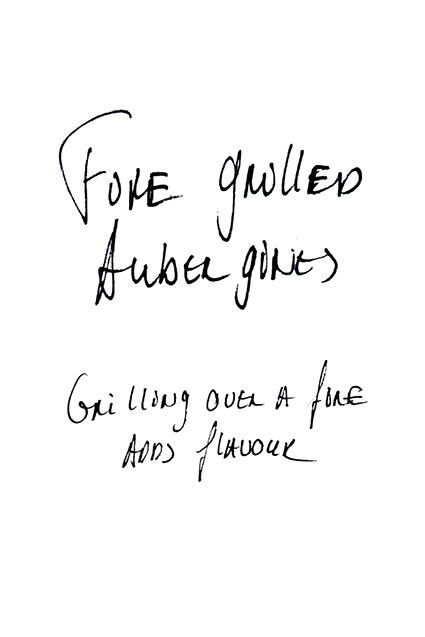 Fire grilled
Aubergines
Grilling over a fire
adds flavour